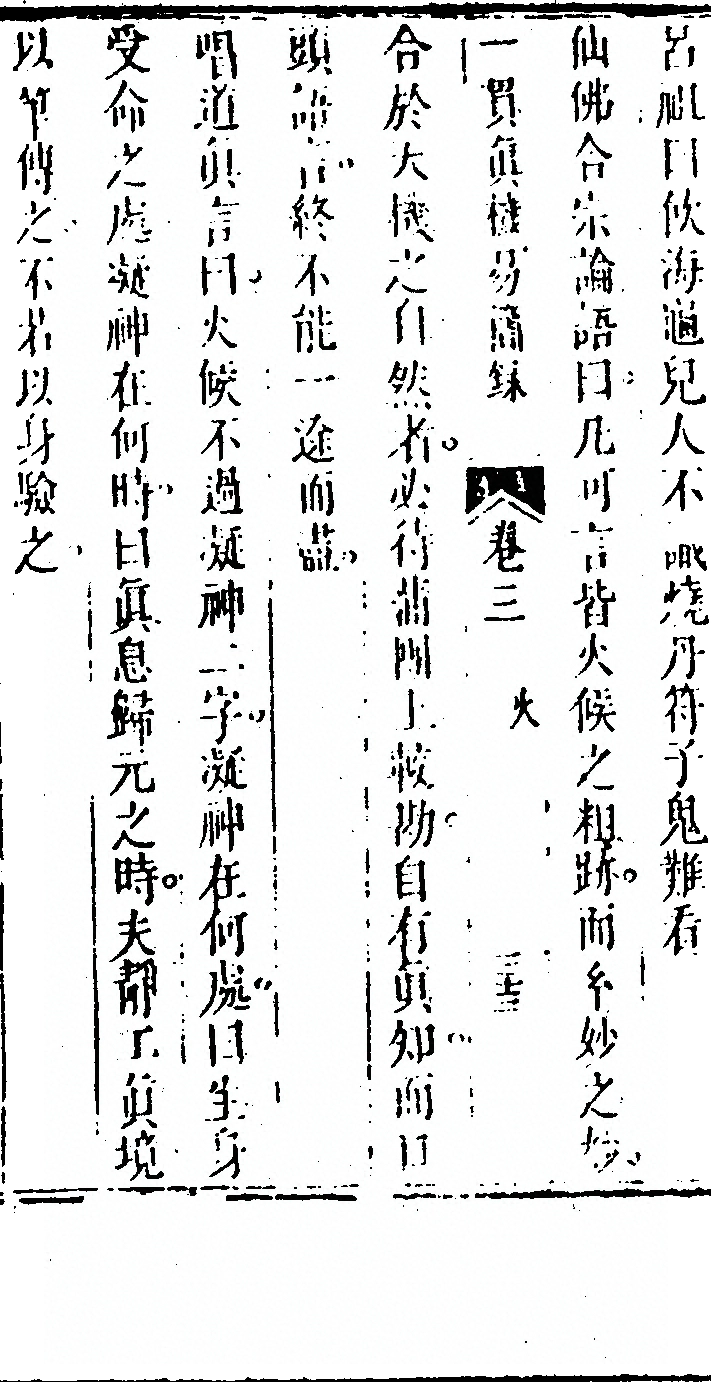 呂祖曰飲海龜兒人不識燒丹符子鬼難看
仙佛合宗論語曰凡可言皆火候之粗跡而糸妙之妙
一貫眞機易簡錄 卷三 火 三十三
合於天機之自然者必待蒲團上較勘自有眞知而口
頭語言終不能一途而盡
唱道眞言曰火候不過凝神二字凝神在何處曰生身
受命之處凝神在何時曰眞息歸元之時夫靜工眞境
以筆傳之不若以身驗之